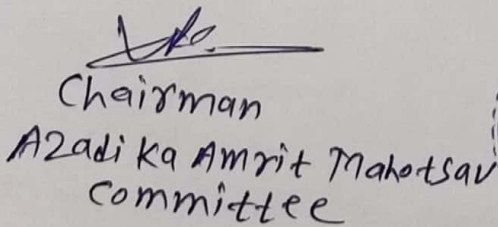 Chairman
Azadi Ka Amrit Mahotsav
Committee